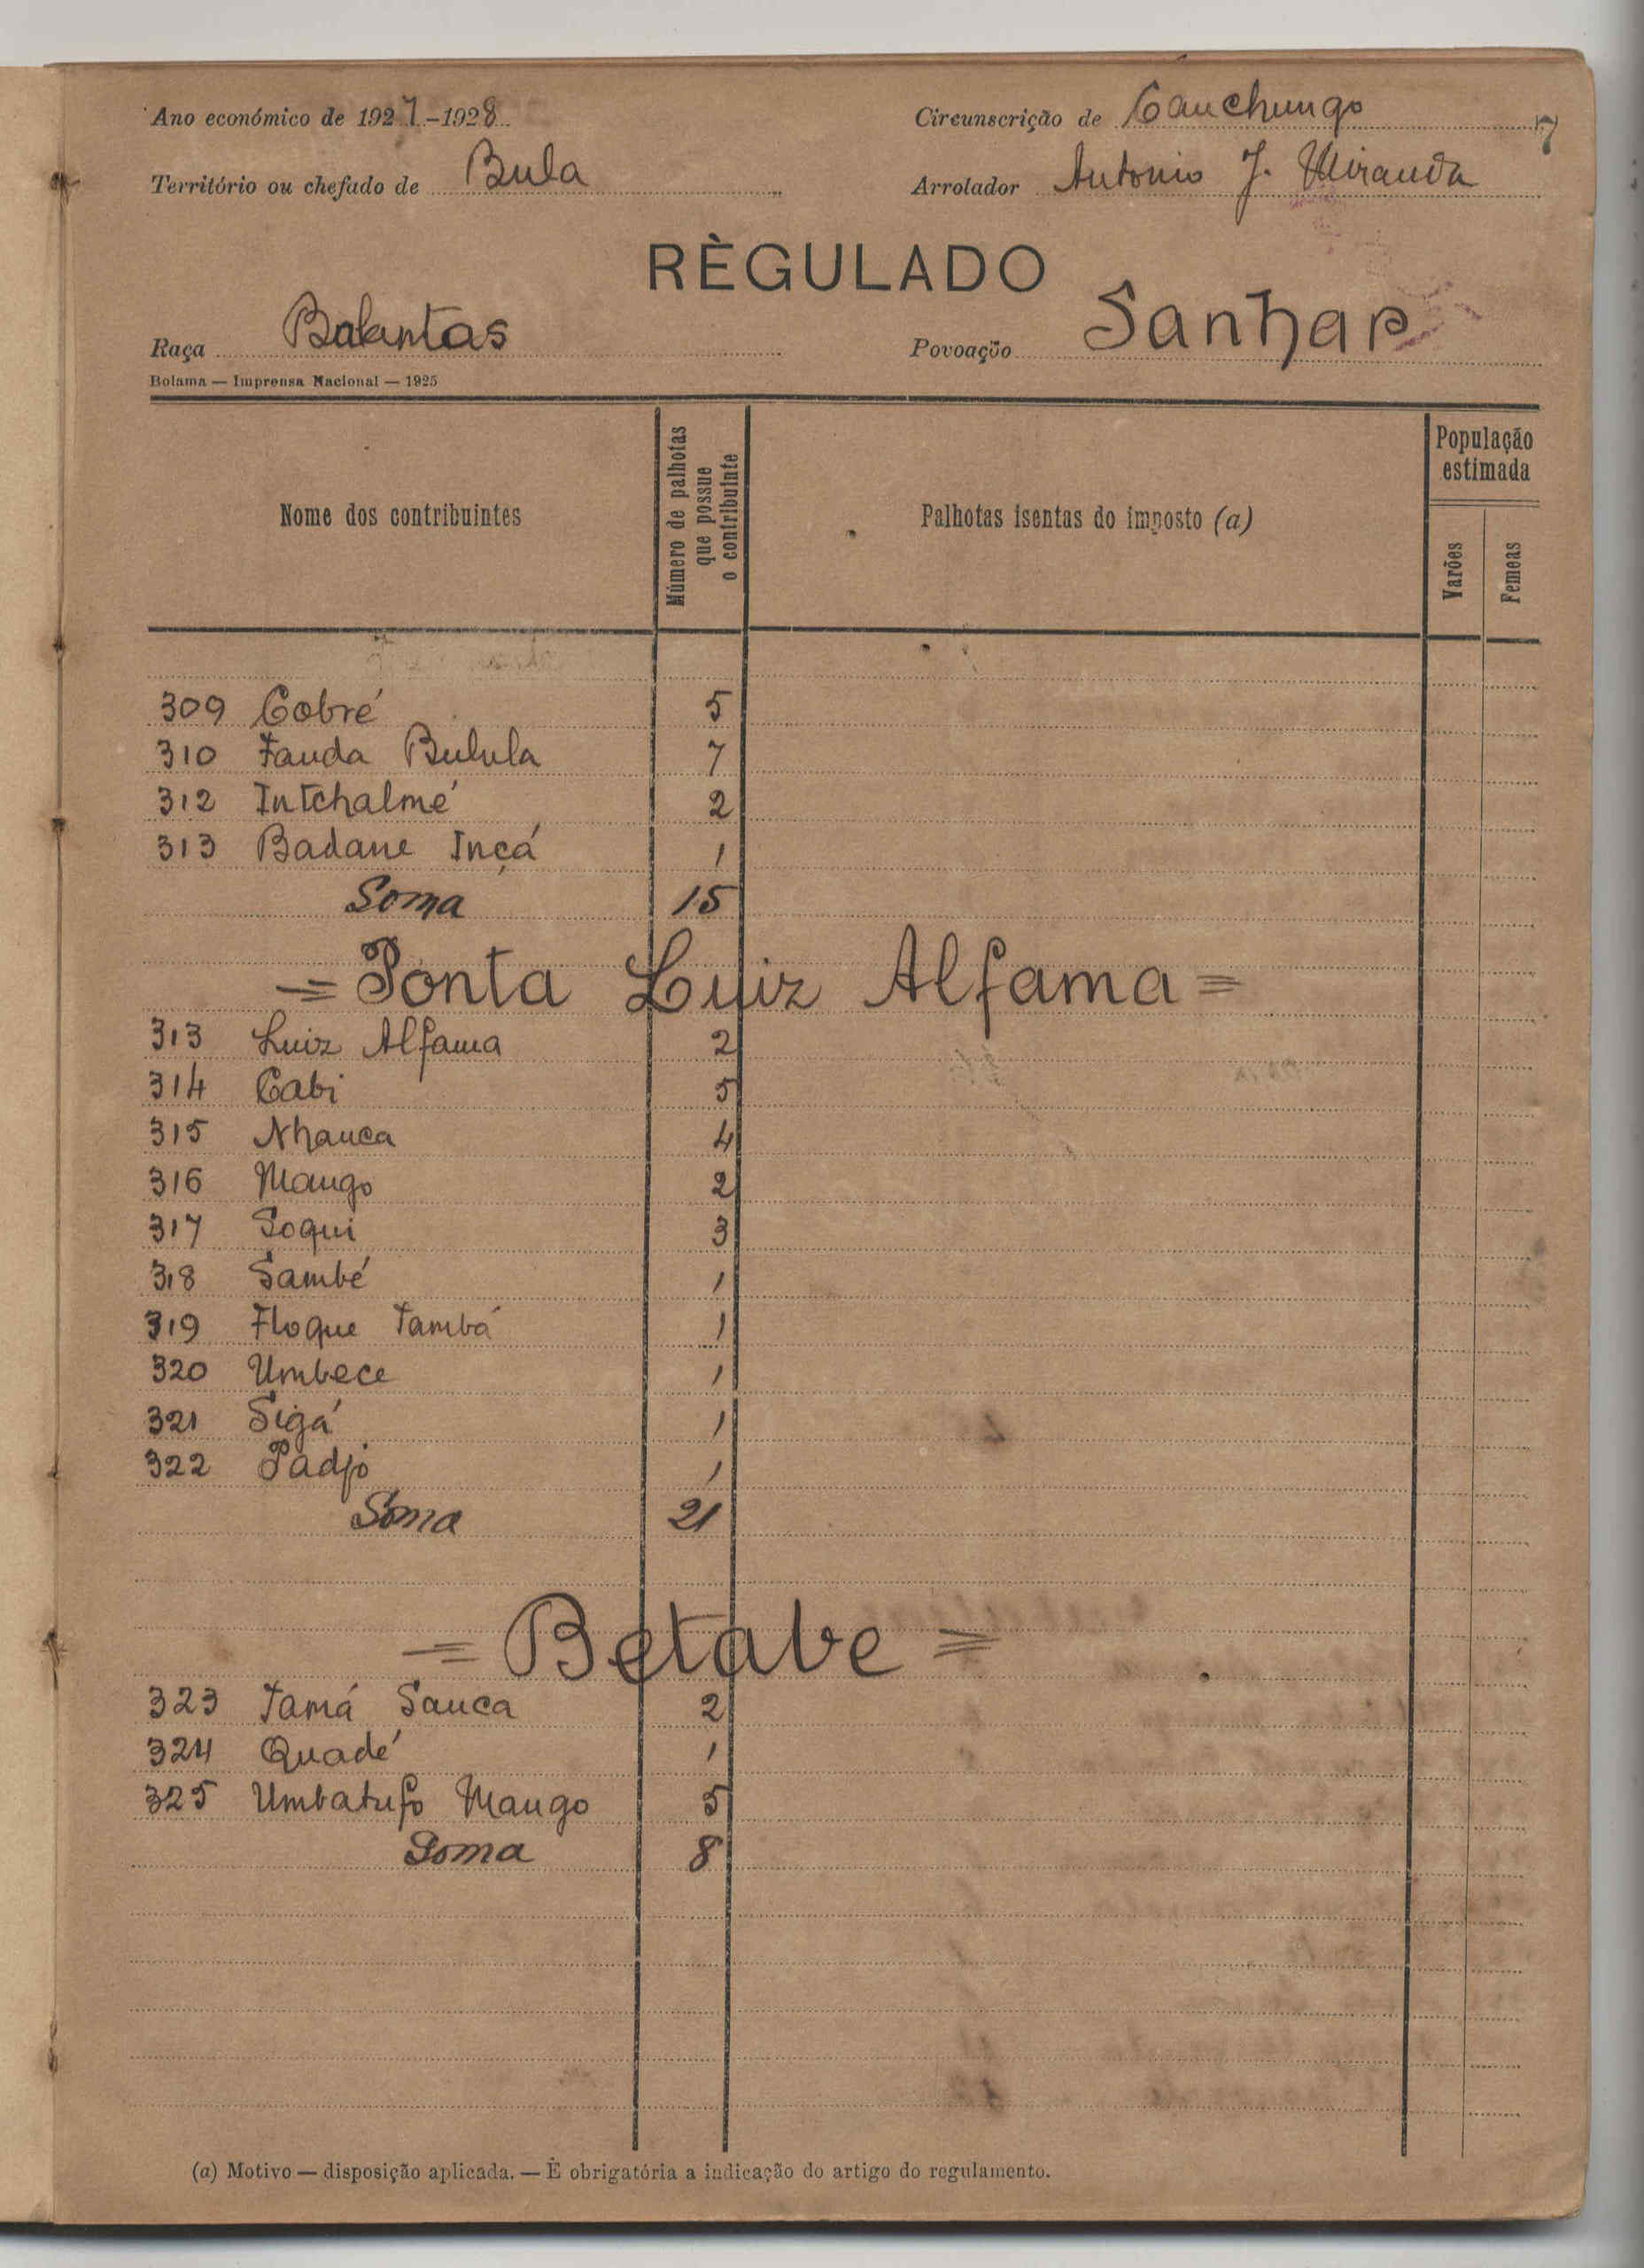 Ano económico de 1927-1928 Circunscrição de Canchungo 7
Território ou chefado de Bula Arrolador Antonio J. Miranda
RÈGULADO
Raça Balantas Povoação Sanhap
Bolama — Imprensa Nacional — 1925
Nome dos contribuintes
Número de palhotas que possue o contribuinte
Palhotas isentas do imposto (a)
População estimada
Varões
Femeas
309 Cobré 5
310 Fanda Bulula 7
312 Intchalmé 2
313 Badane Inçá 1
Soma 15
= Ponta Luiz Alfama =
313 Luiz Alfama 2
314 Cabi 5
315 Nhanca 4
316 Mango 2
317 Soqui 3
318 Sambé 1
319 Floque Tambá 1
320 Umbece 1
321 Sigá 1
322 Padjo 1
Soma 21
= Betabe =
323 Tamá Sanca 2
324 Quadé 1
325 Umbatufo Mango 5
Soma 8
(a) Motivo — disposição aplicada. — È obrigatória a indicação do artigo do regulamento.